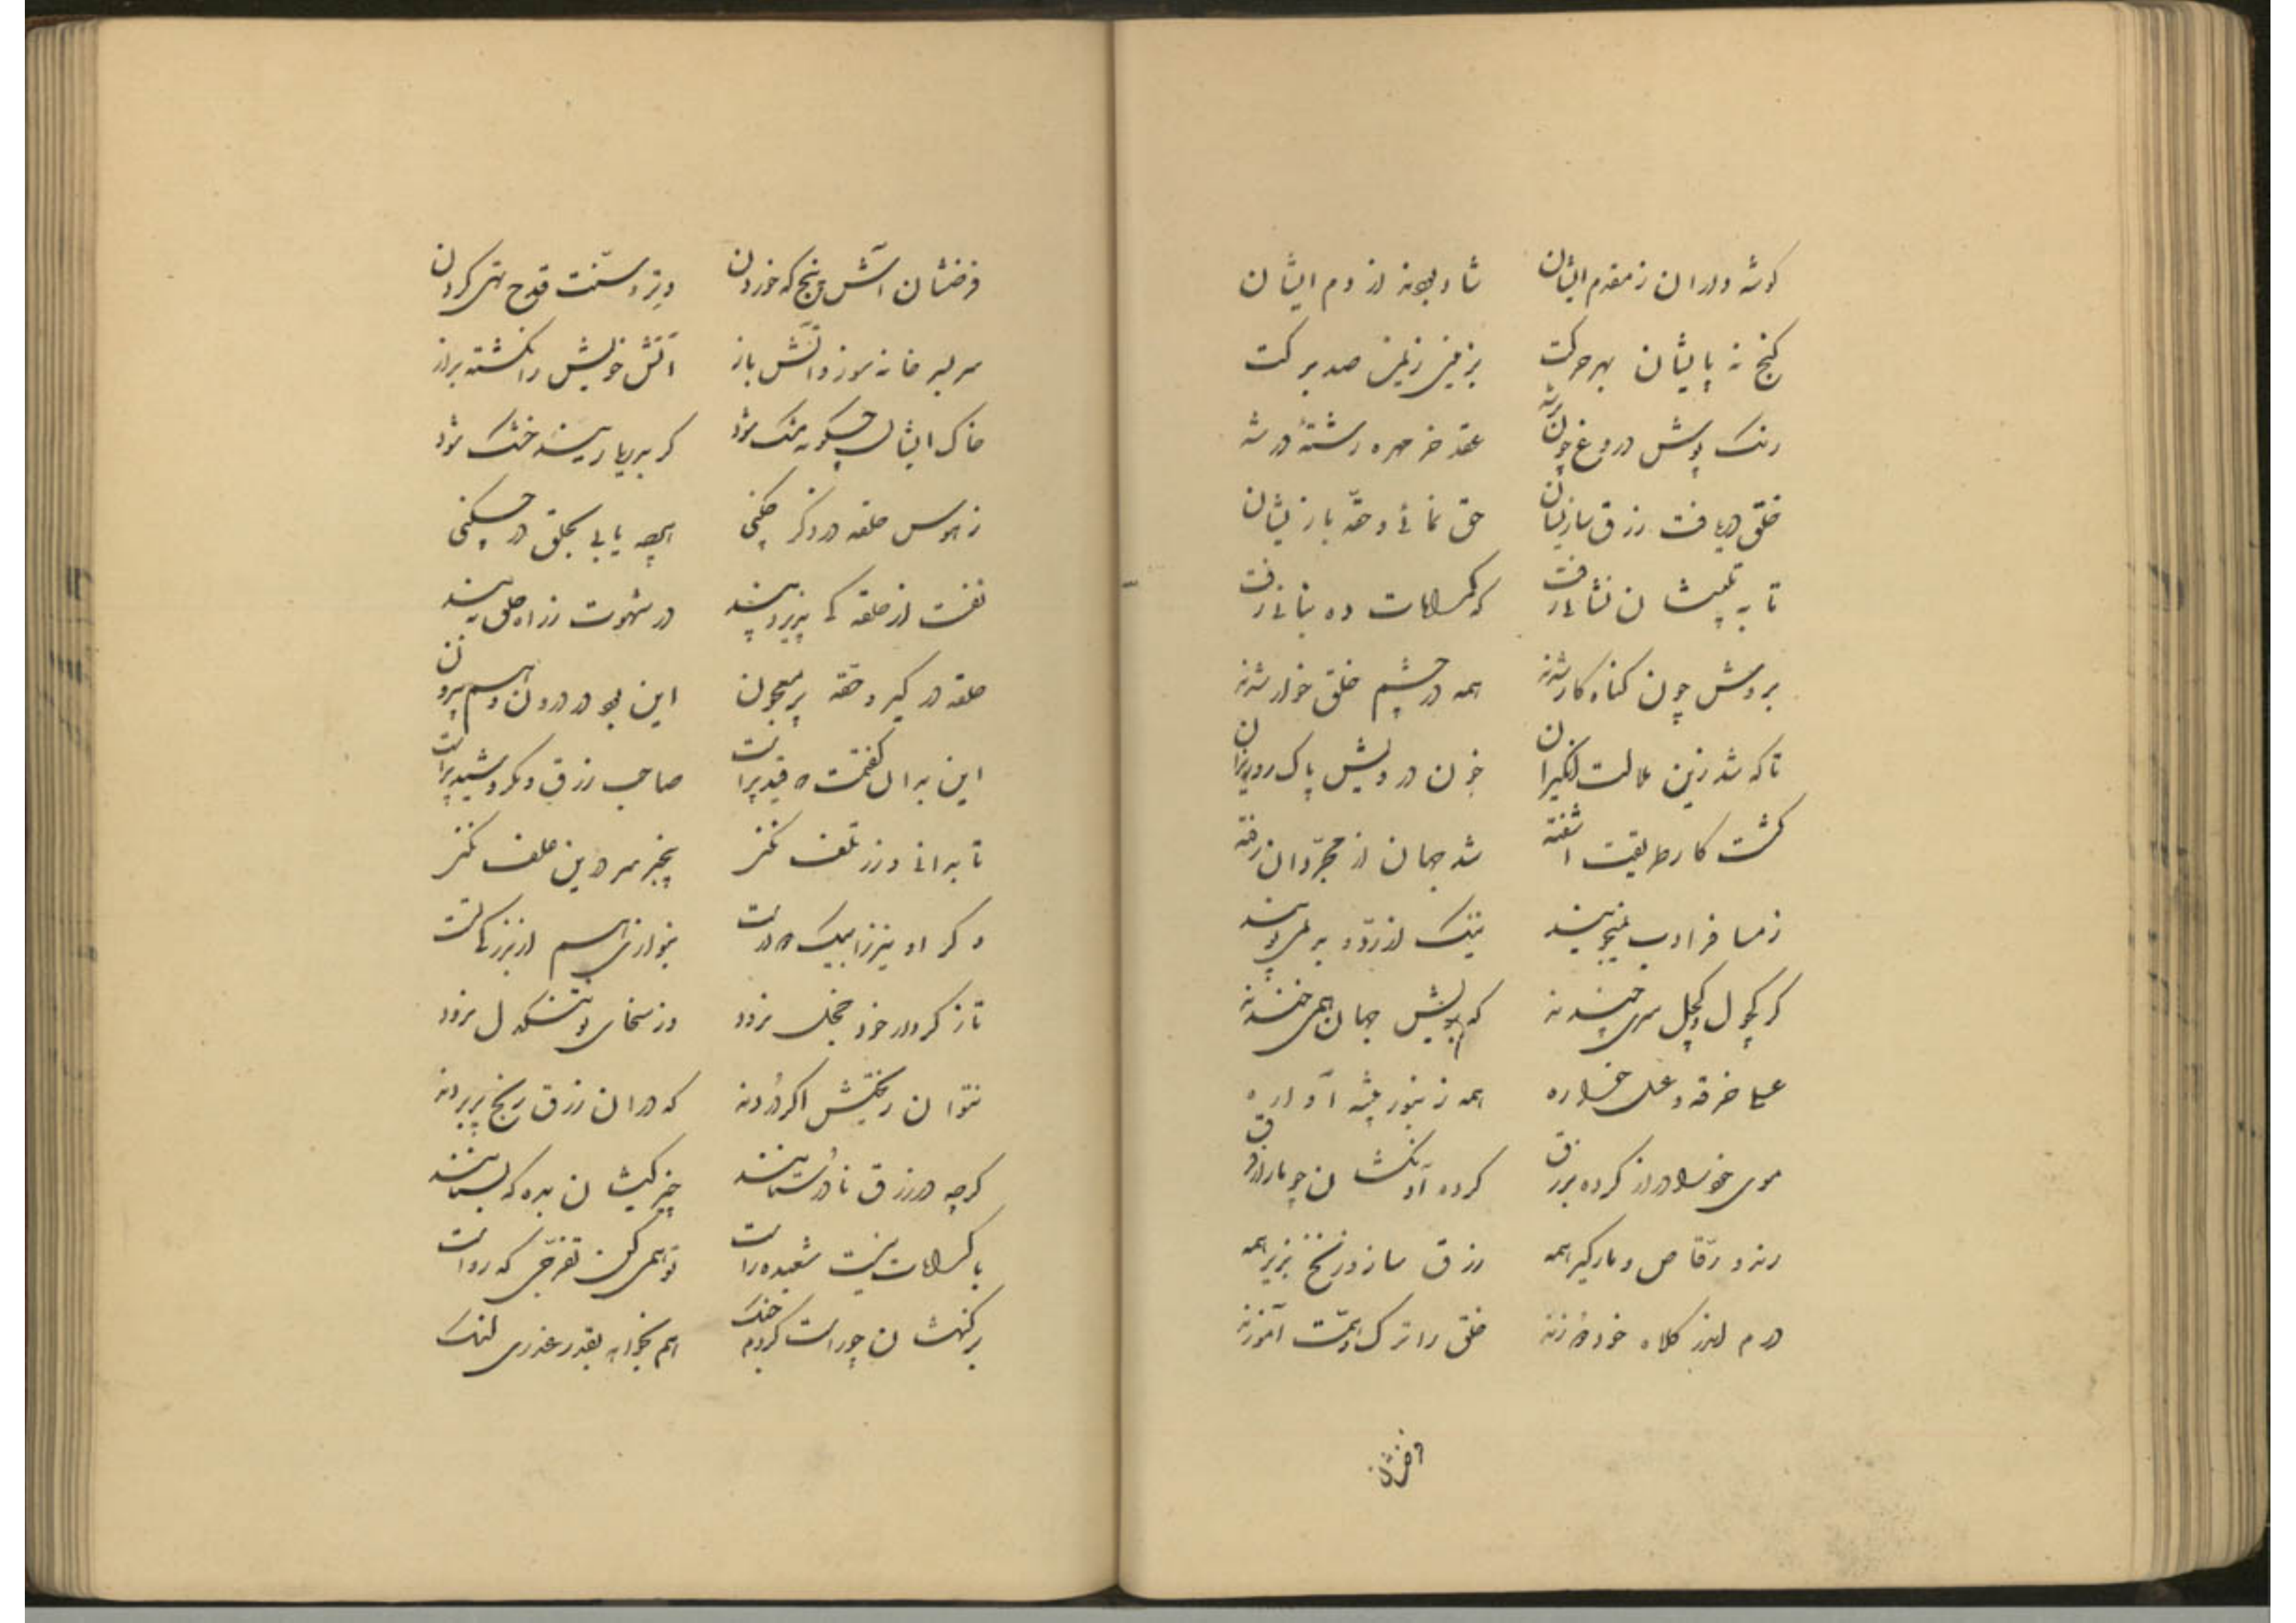 گوشه داران ز مقدم ایشان شاد بوده از دم ایشان
گنج نه پایشان بهر حرکت بزمین زمین صد برکت
رنگ پوش دروغ چون برشد عقد خرمهره رشتهٔ در شد
خلق دریافت رزق سازیشان حق نمائی و حقه بازیشان
تا به تلبیسشان نشانی رفت که کرامات ده بنانی رفت
بروش چون گناه کار شدند همه در چشم خلق خوار شدند
تا که شد زین ملالت انگیزان خون درویش پاک رو ریزان
گشت کار طریقت آشفته شد جهان از مجردان رفته
ز مسافر ادب نمیجویند نیک از رد و بد نمیپویند
گر کچول و کچل سری چندند که بریش جهان همی خندند
خرقه همه زنبور پیشه آواره
موی خود را دراز کرده بزرق کرده آونگشان چو مار از فرق
رند و رقاص و مارگیر همه رزق ساز و زنخ پذیر همه
درم اندر کلاه خود دوزند خلق را ترک و همت آموزند
فرضشان
فرضشان آش و پنج که خوردن وتر و سنت قدح تهی کردن
سر بسر خانه سوز و آتش باز آتش خویش را نکشته براز
خاک ایشان چگونه مشک شود گر بدریا رسند خشک شود
ز هوس حلقه در ذکر چکنی هرچه یابی بحلق در چکنی
نفست از حلقه کی پذیرد پند در شهوت ز راه حلق ببند
حلقه در گیر و حقه پر معجون این بود در درون و هم بیرون
این بدان گفتمت که قید پر است صاحب زرق و مکر و شید پر است
تا بدانی و زر تلف نکنی پنجبر سر درین علف نکنی
وگر او نیز زابلیک در است بنوازش هم از بزرگانست
تا ز کردار خود خجل نرود وز سخای تو تنگدل نرود
نتوان ریختش اگر دردند که در آن زرق رنج پر بردند
گرچه در زرق نادرستانند چیزکیشان بده که بستانند
با کرامات نیست شعبده راست تو همی کن تفرجی که رواست
برگنهشان چو راست کردم جنگ هم بخواهم بقدر عذری لنگ